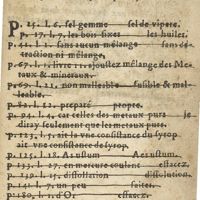 P. 15. l. 6. sel gemme sel de vipere.
p. 17. l. 7. les bois fixes les huiles.
p. 41. l. 1. sans aucun mélange sans
traction ni mélange,
p. 67. l. 11. ajoustez mélange des Me-
taux & mineraux.
p. 69. l. 21. non malleable fusible & mal-
leable.
p. 82. l. 12. preparé propre.
p. 94. l. 4. car celles des metaux purs je
diray seulement que les metaux purs.
p. 123. l. 5. ait la vne consistance du syrop
ait vne consistance de syrop.
p. 125. l. 18. As ustum Aes ustum.
p. 133. l. 27. en mercure coulent effacez.
p. 139. l. 15. dissollation dissolution.
p. 141. l. 9. un peu faites.
p. 180. l. 1. d'Or effacez.